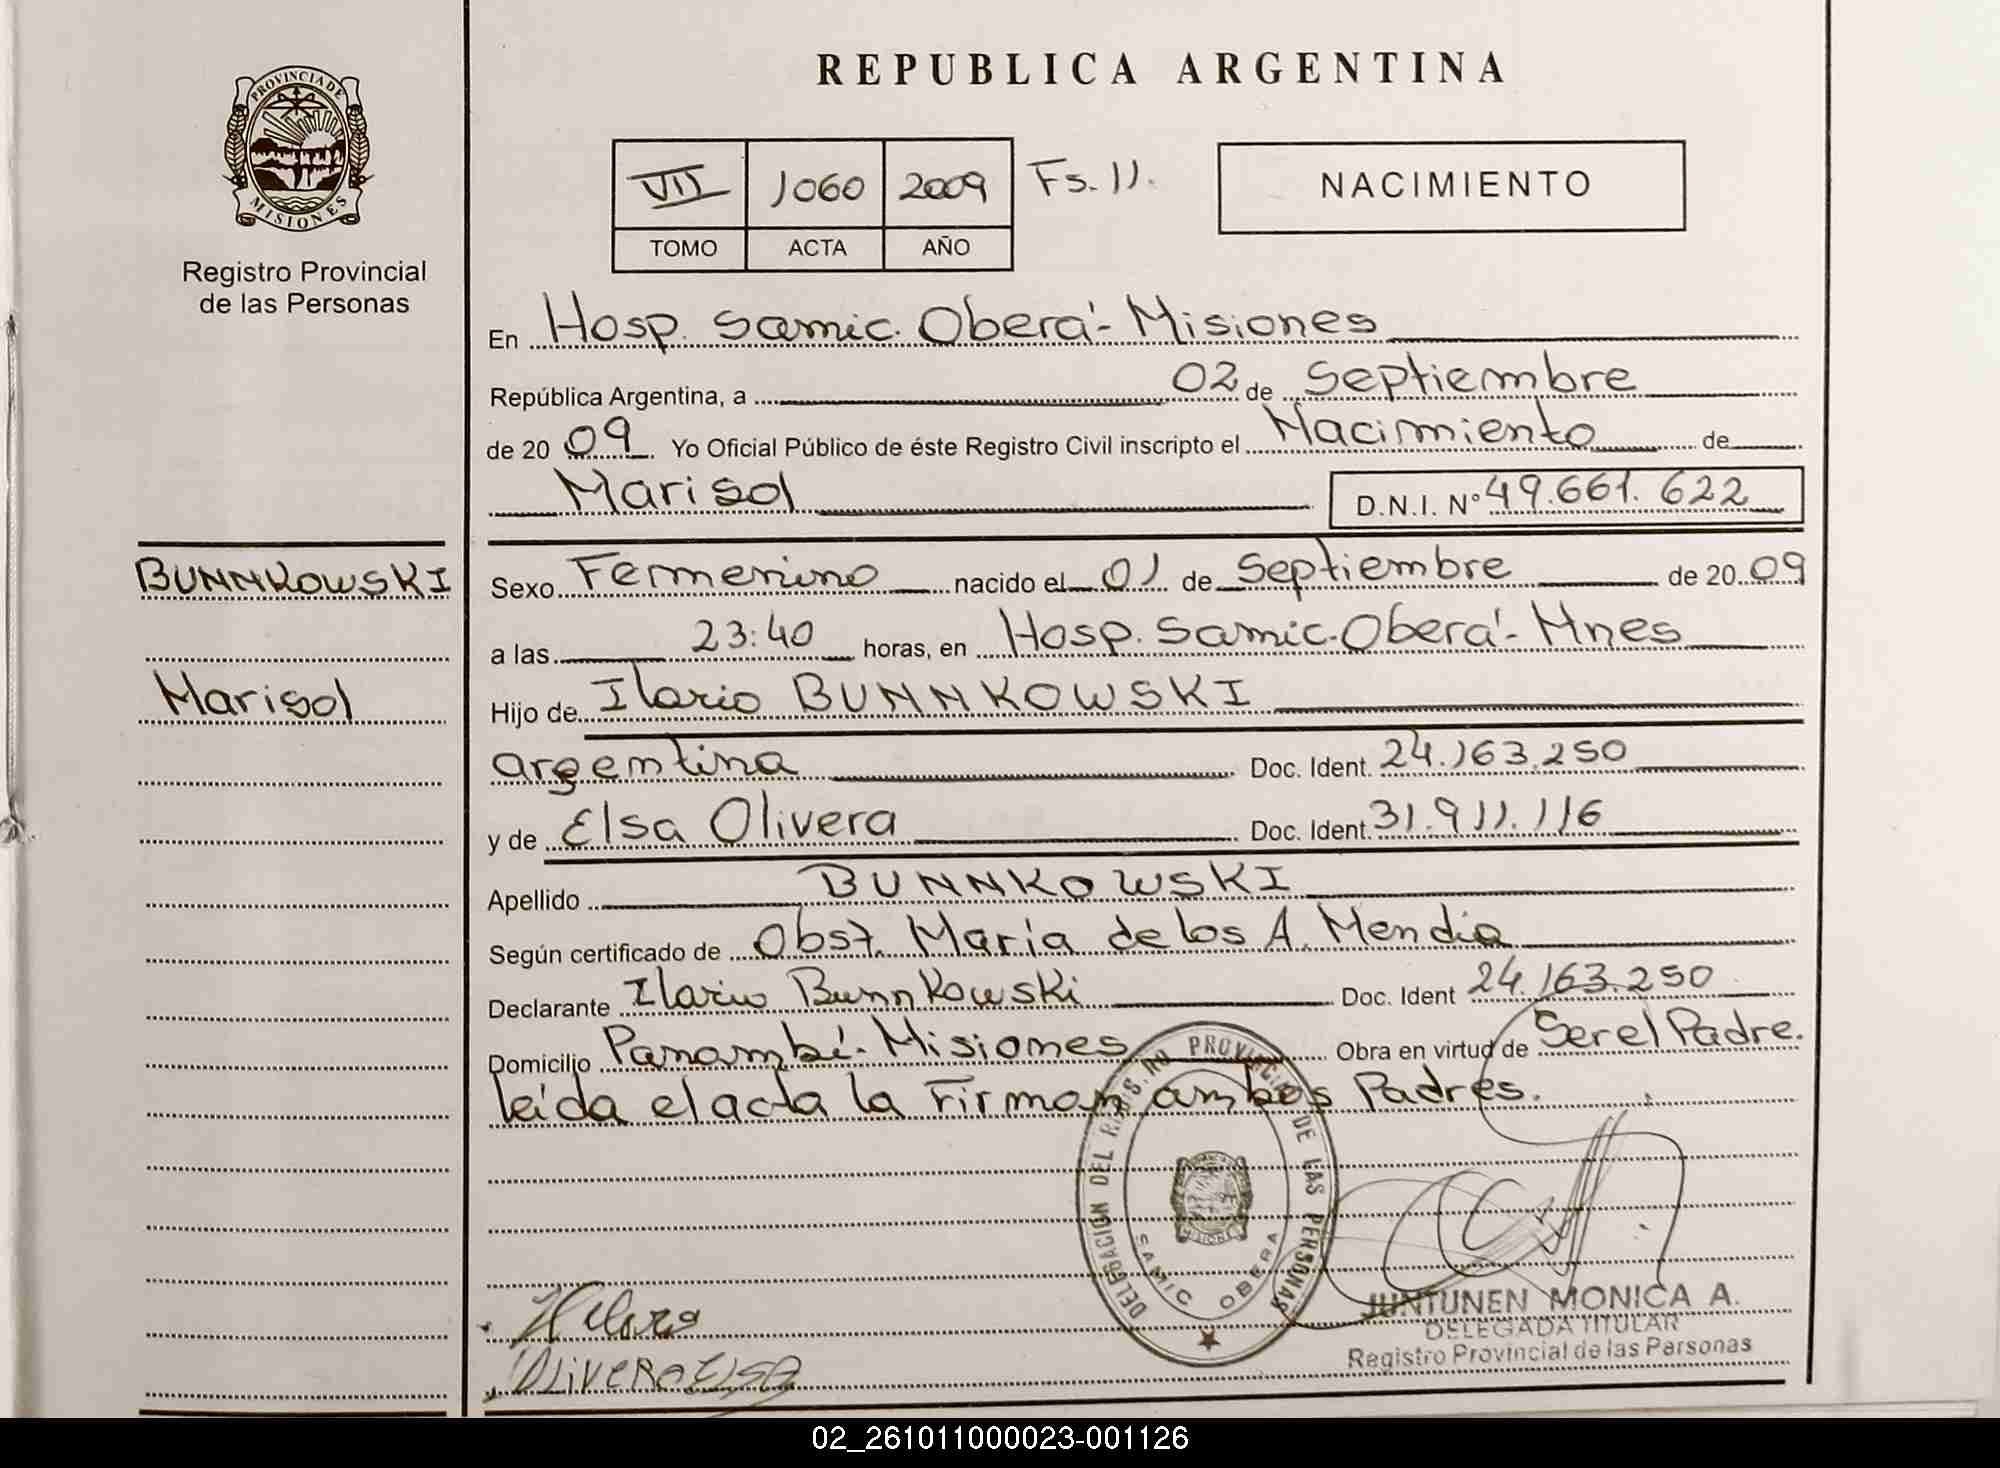 PROVINCIA DE
MISIONES
Registro Provincial
de las Personas
REPUBLICA ARGENTINA
VII 1060 2009 Fs. 11.
TOMO ACTA AÑO
NACIMIENTO
En Hosp. Samic. Oberá - Misiones
República Argentina, a 02 de Septiembre
de 2009 Yo Oficial Público de éste Registro Civil inscripto el Nacimiento de
Marisol D.N.I. Nº 49.661.622
BUNNKOWSKI
Marisol
Sexo Femenino nacido el 01 de Septiembre de 2009
a las 23:40 horas, en Hosp. Samic. Oberá - Mnes
Hijo de Ilario BUNNKOWSKI
argentina Doc. Ident. 24.163.250
y de Elsa Olivera Doc. Ident. 31.911.116
Apellido BUNNKOWSKI
Según certificado de Obst. María de los A. Mendia
Declarante Ilario Bunnkowski Doc. Ident 24.163.250
Domicilio Panambí - Misiones Obra en virtud de Ser el Padre.
leída el acta la Firman ambos Padres.
DELEGACION DEL REGISTRO PROVINCIAL DE LAS PERSONAS
SAMIC OBERA
OLIVERA ELSA
JUNTUNEN MONICA A.
DELEGADA TITULAR
Registro Provincial de las Personas
02_261011000023-001126